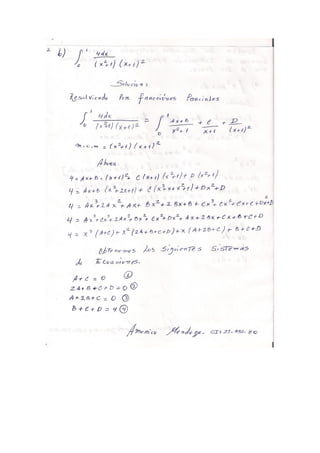 2 b) ∫₀¹ 4dx / (x²+1)(x+1)²
Solución:
Resolviendo Por fracciones Parciales
∫₀¹ 4dx / (x²+1)(x+1)² = ∫₀¹ Ax+B / x²+1 + C / x+1 + D / (x+1)²
m.c.m = (x²+1)(x+1)²
Ahora
4 = Ax+B · (x+1)² + C(x+1)(x²+1) + D(x²+1)
4 = Ax+B (x²+2x+1) + C(x³+x+x²+1) + Dx²+D
4 = Ax³+2Ax²+Ax+Bx²+2Bx+B+Cx³+Cx²+Cx+C+Dx²+D
4 = Ax³+Cx³+2Ax²+Bx²+Cx²+Dx²+Ax+2Bx+Cx+B+C+D
4 = x³(A+C)+x²(2A+B+C+D)+x(A+2B+C)+B+C+D
Obtenemos los Siguientes Sistemas
de Ecuaciones.
A+C = 0 ①
2A+B+C+D = 0 ②
A+2B+C = 0 ③
B+C+D = 4 ④
Americo Mendoza